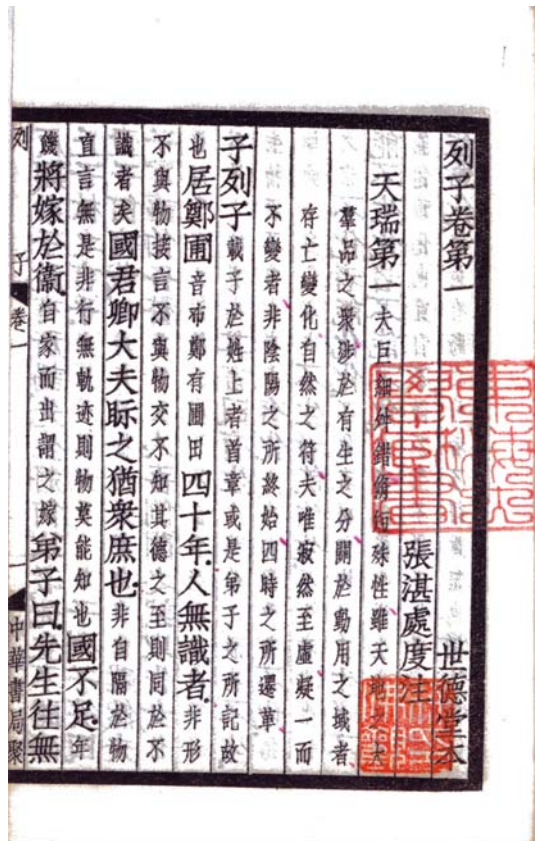 列子卷第一　世德堂本
張湛處度注
天瑞第一　夫巨細舛錯脩短殊性雖天地之大
羣品之衆涉於有生之分關於動用之域者
存亡變化自然之符夫唯寂然至虛凝一而
不變者非陰陽之所終始四時之所遷革
子列子載子於姓上者首章或是弟子之所記故
也居鄭圃音布鄭有圃田四十年人無識者非形
不與物接言不與物交不知其德之至則同於不
識者矣國君卿大夫眎之猶衆庶也非自隔於物
直言無是非行無軌迹則物莫能知也國不足年
饑將嫁於衞自家而出謂之嫁弟子曰先生往無
列子　卷一　一　中華書局聚